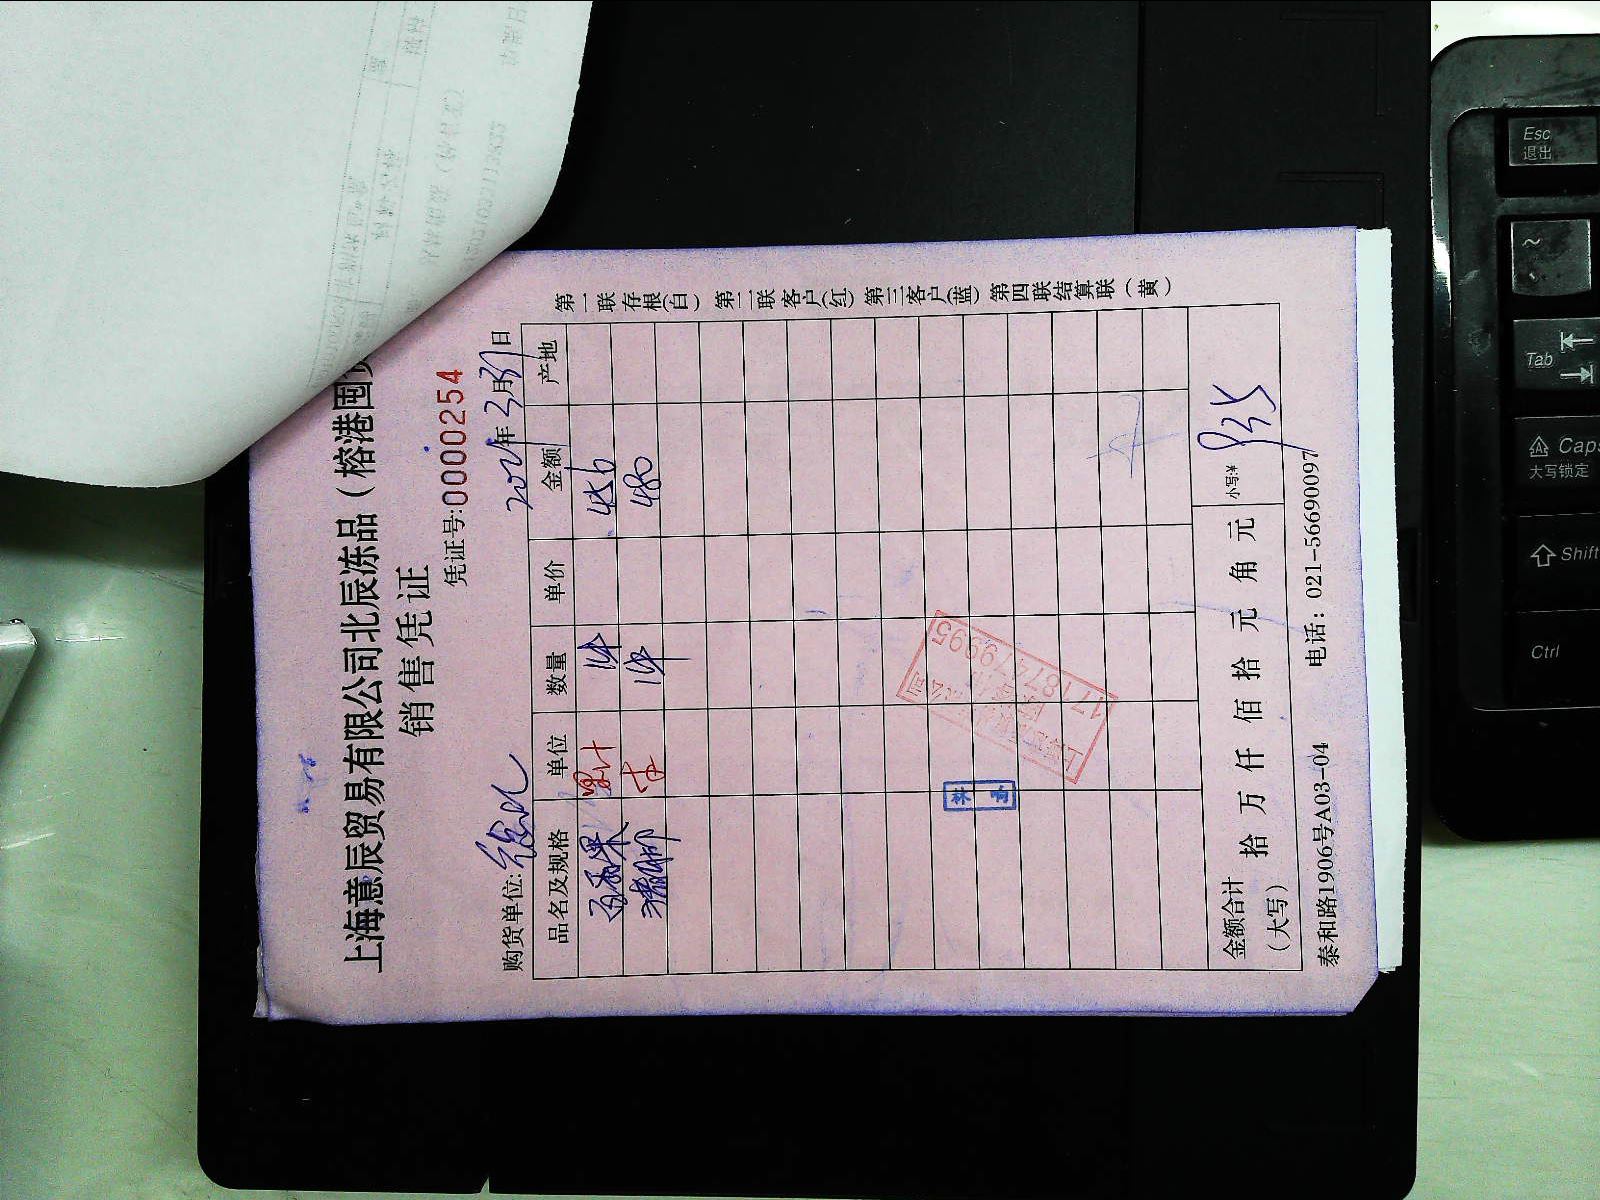 上海意辰贸易有限公司北辰冻品（榕港囤货
销售凭证
凭证号:0000254
购货单位:
年3月31日
品名及规格 单位 数量 单价 金额 产地
百香果 累计 1件 456
猪脚 1件 480
17187479995
金额合计（大写） 拾 万 仟 佰 拾 元 角 元 小写:¥ 935
泰和路1906号A03-04 电话：021-56690097
第一联存根(白) 第二联客户(红) 第三客户(蓝) 第四联结算联（黄）
Esc
退出
~
Tab
Caps
大写锁定
Shift
Ctrl